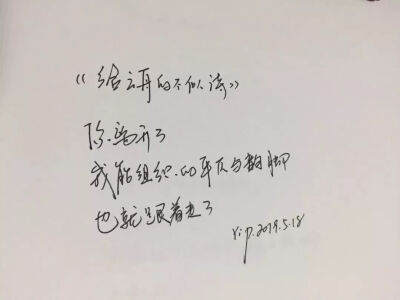 《给云再的不似诗》
你离开了
我能组织的平仄与韵脚
也就跟着走了
Yip.2019.5.18